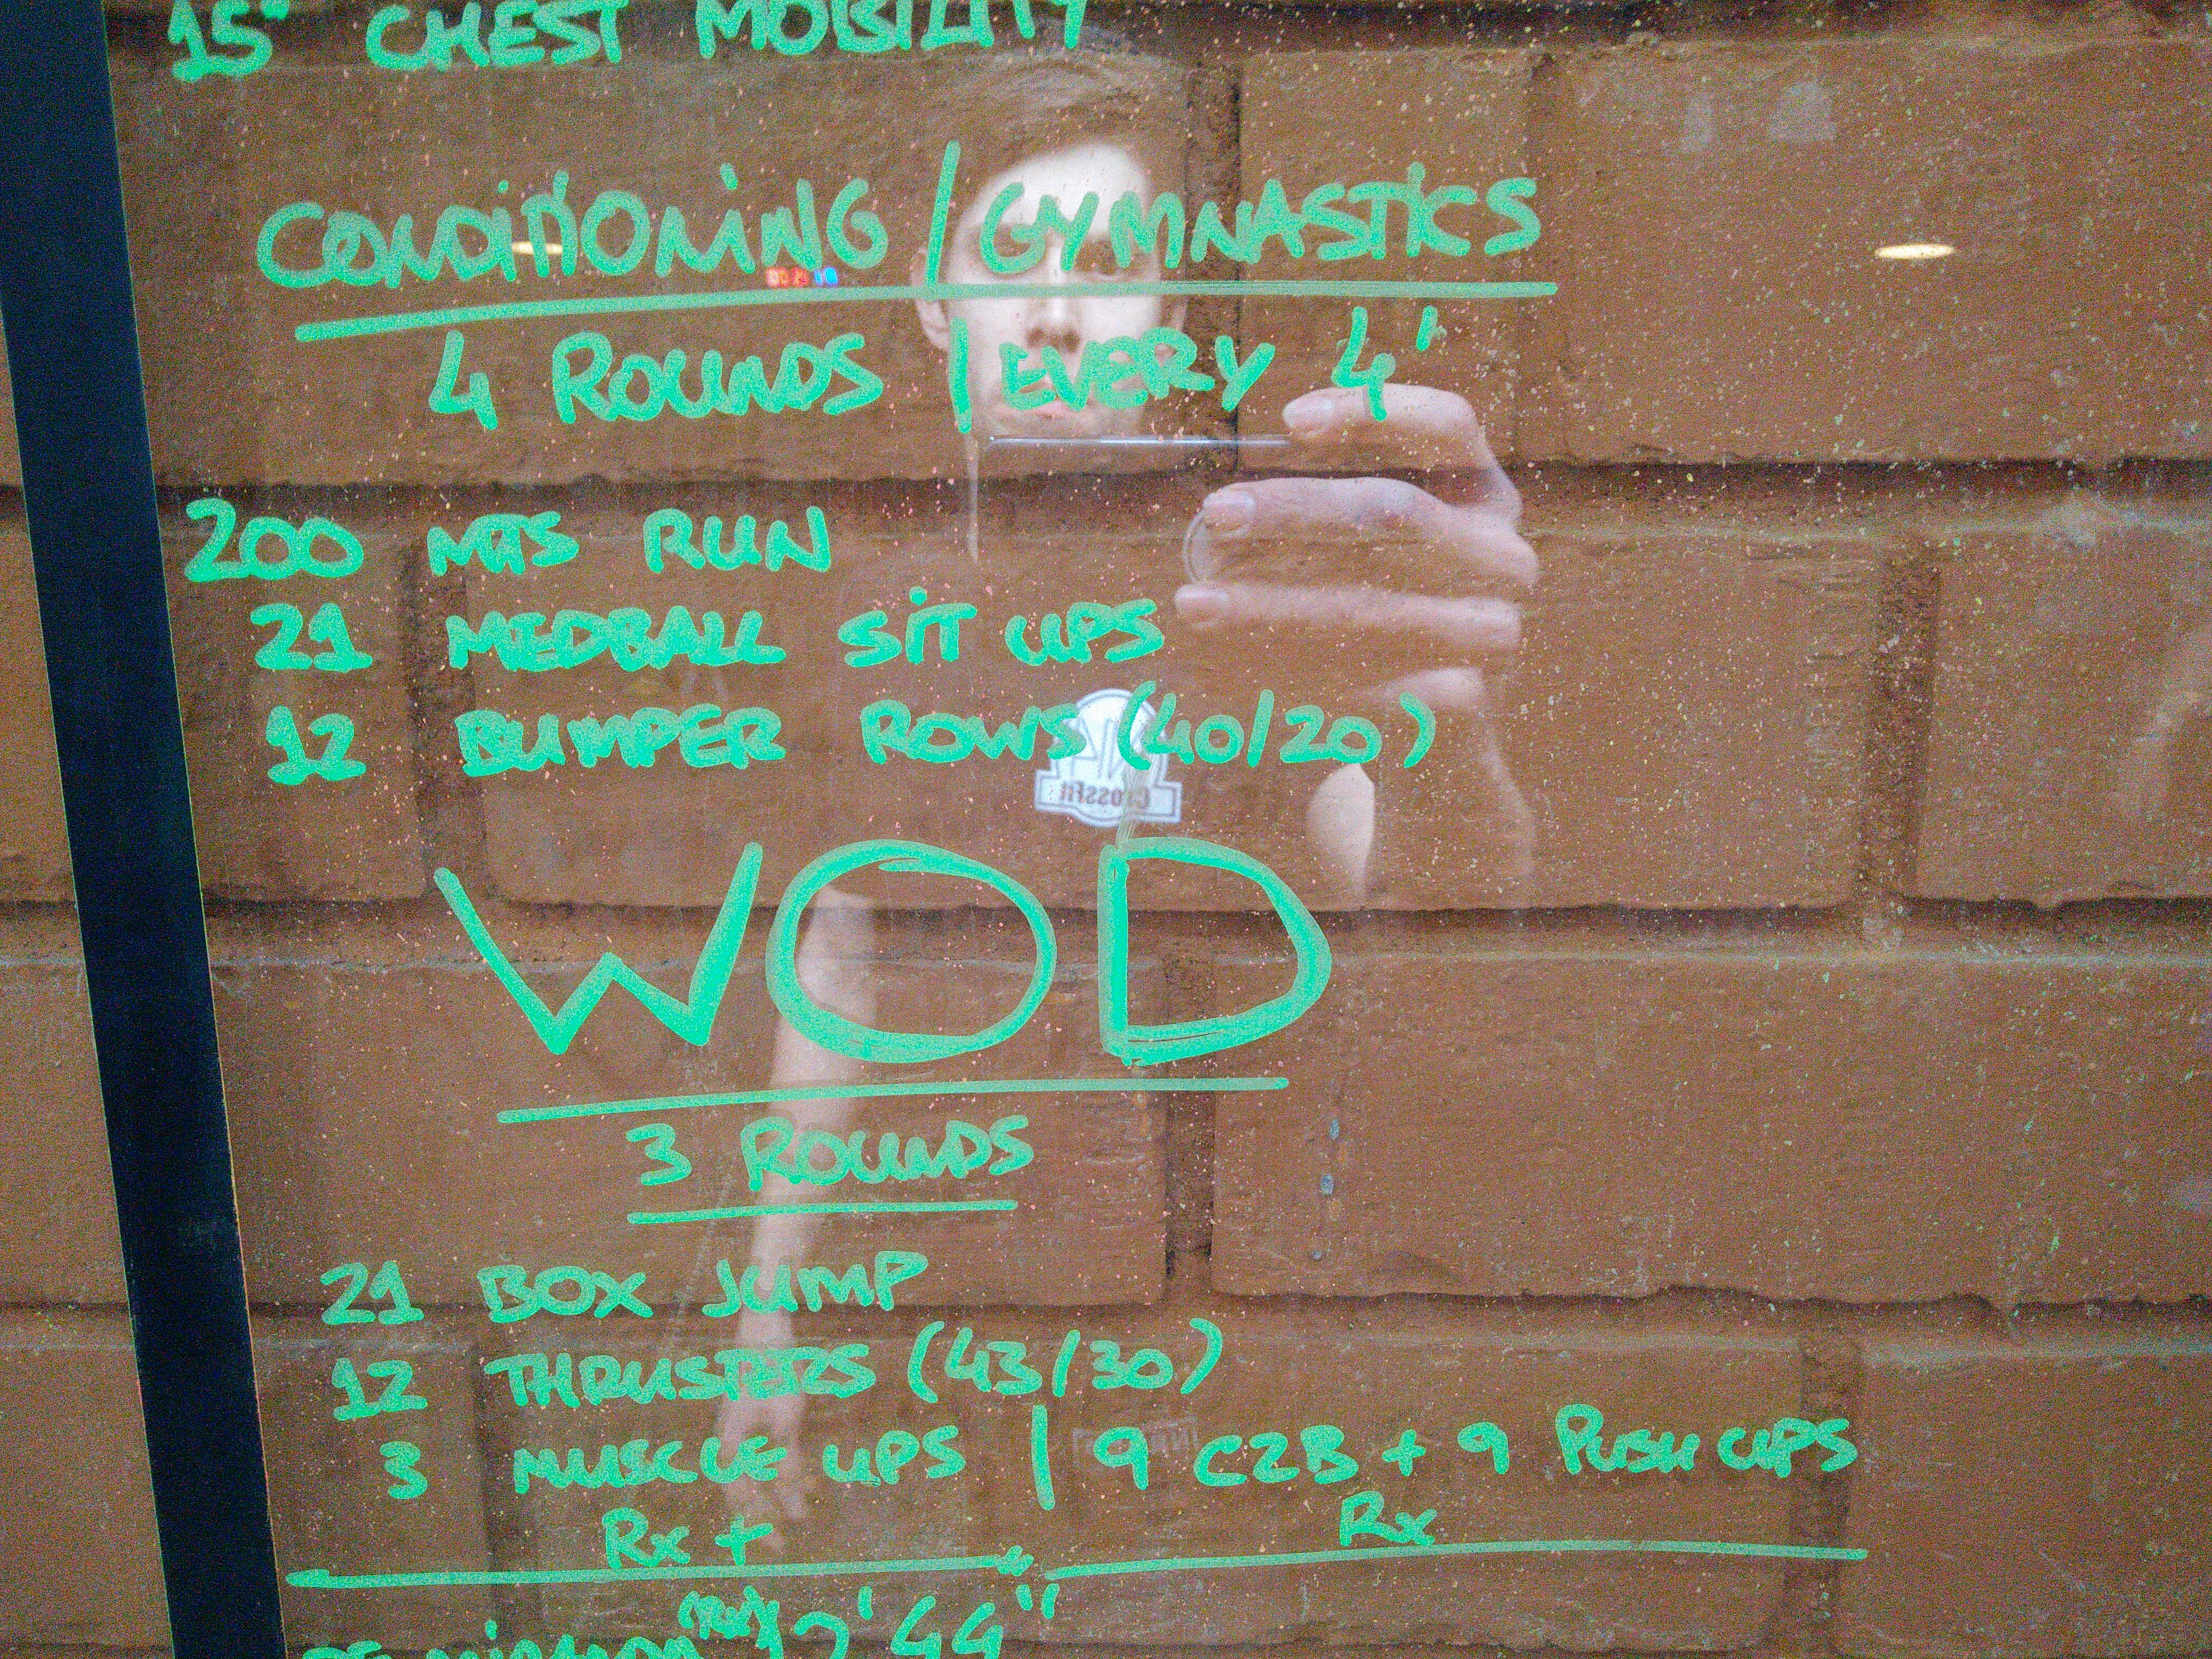 15" CHEST MOBILITY
CONDITIONING / GYMNASTICS
4 ROUNDS | EVERY 4'
200 MTS RUN
21 MEDBALL SIT UPS
12 BUMPER ROWS (40/20)
CrossFit
WOD
3 ROUNDS
21 BOX JUMP
12 THRUSTERS (43/30)
3 MUSCLE UPS | 9 C2B + 9 PUSH UPS
Rx + Rx
(Rx) 12'44"